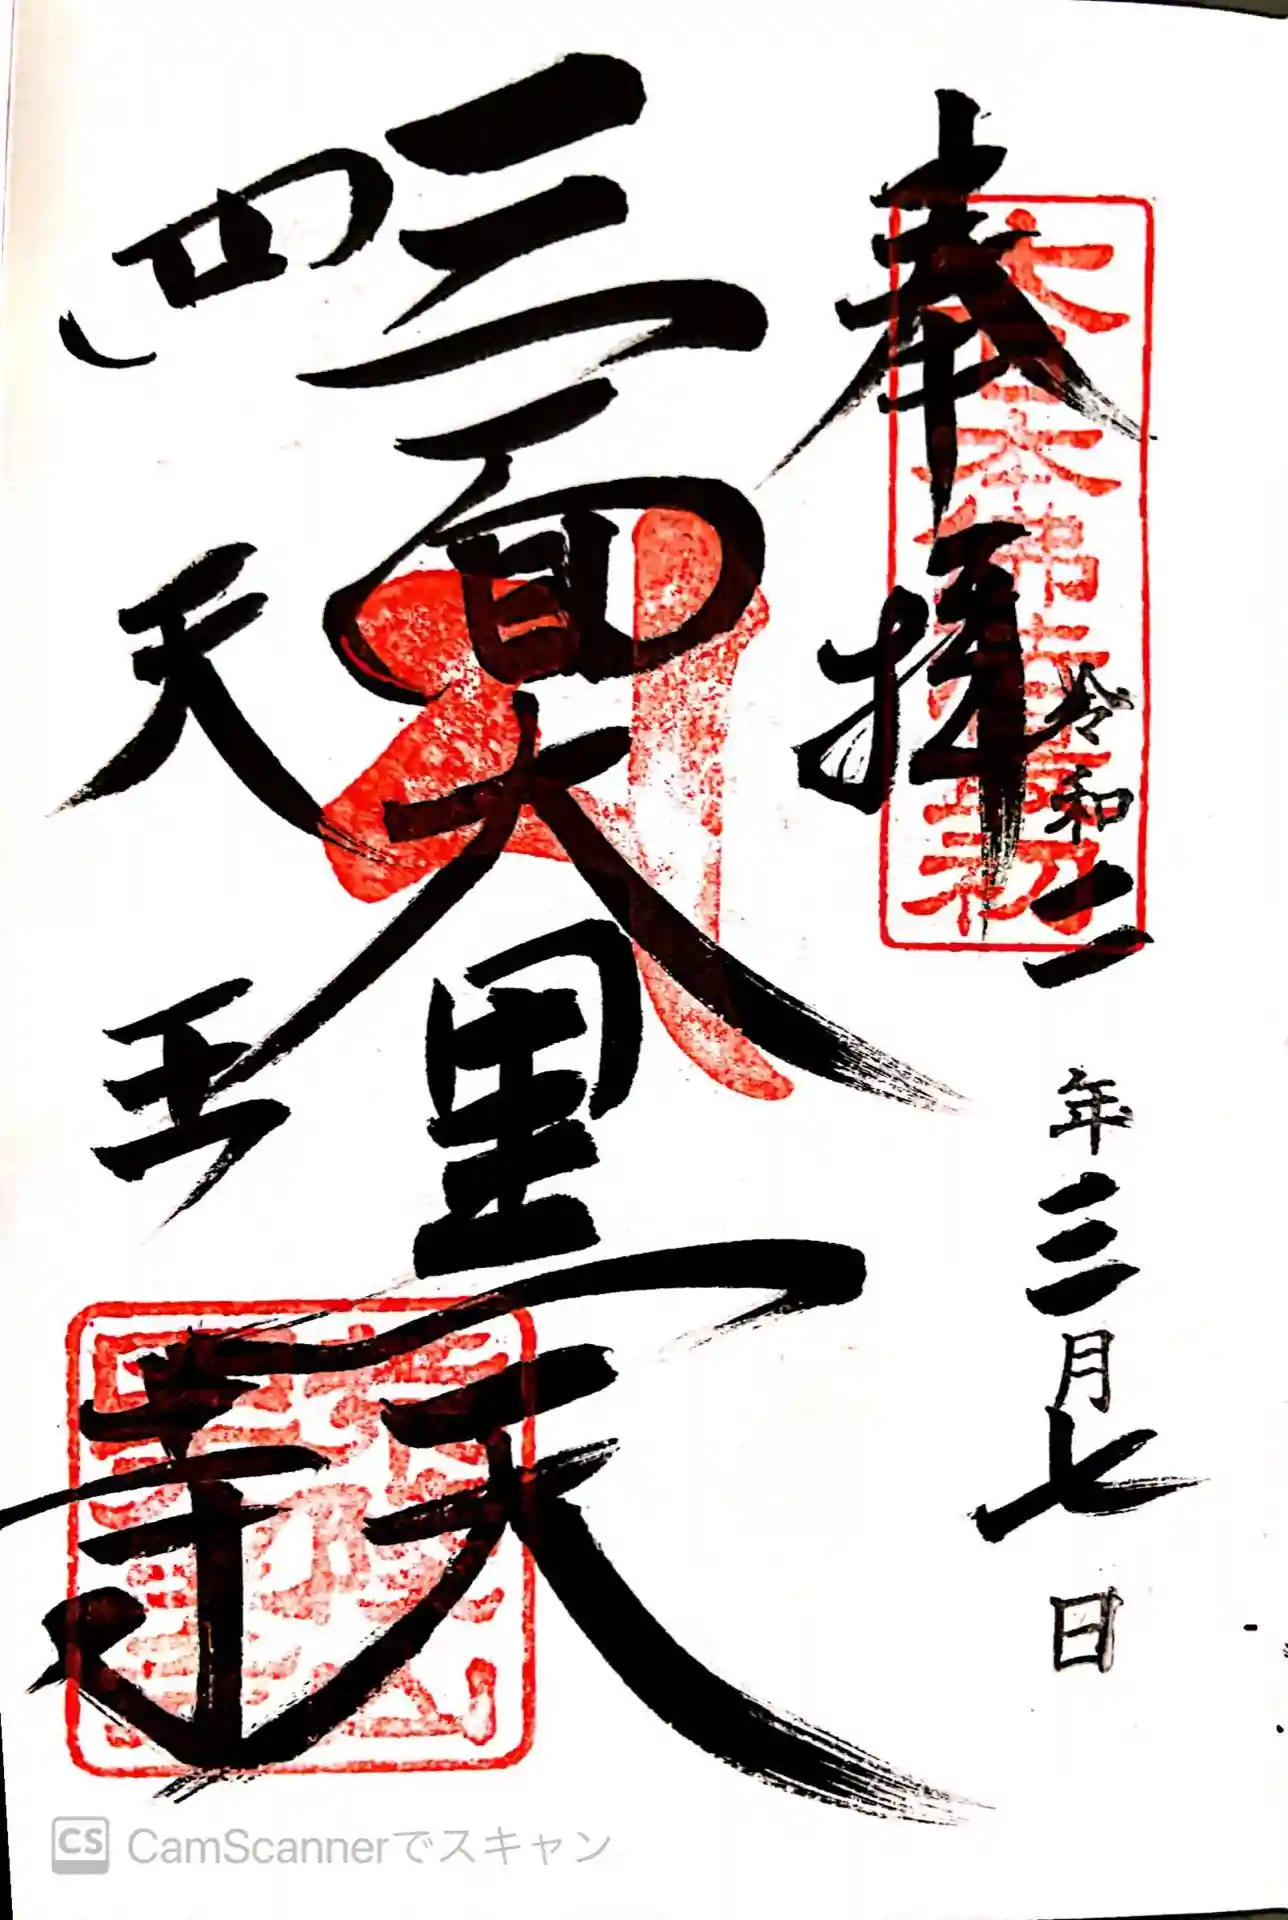 奉拝
令和二年三月七日
三面大黒天
四天王寺
CS CamScannerでスキャン